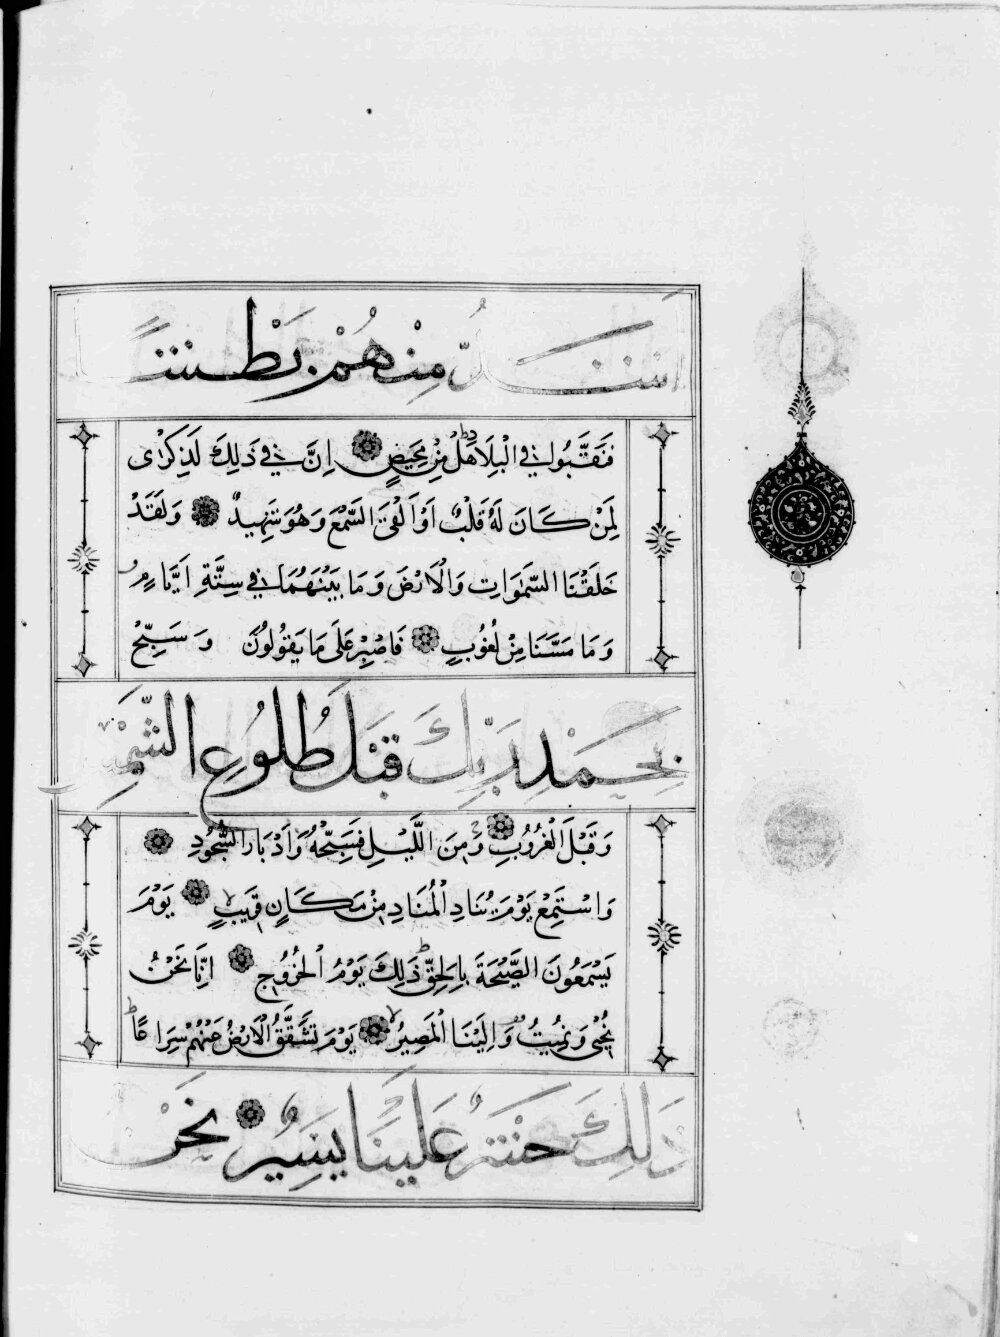 اَشَدُّ مِنْهُمْ بَطْشًا
فَنَقَّبُوا فِي الْبِلَادِ هَلْ مِنْ مَحِيصٍ اِنَّ فِي ذَلِكَ لَذِكْرٰى
لِمَنْ كَانَ لَهُ قَلْبٌ اَوْ اَلْقَى السَّمْعَ وَهُوَ شَهِيدٌ وَلَقَدْ
خَلَقْنَا السَّمٰوَاتِ وَالْاَرْضَ وَمَا بَيْنَهُمَا فِي سِتَّةِ اَيَّامٍ
وَمَا مَسَّنَا مِنْ لُغُوبٍ فَاصْبِرْ عَلَى مَا يَقُولُونَ وَسَبِّحْ
بِحَمْدِ رَبِّكَ قَبْلَ طُلُوعِ الشَّمْسِ
وَقَبْلَ الْغُرُوبِ وَمِنَ اللَّيْلِ فَسَبِّحْهُ وَاَدْبَارَ السُّجُودِ
وَاسْتَمِعْ يَوْمَ يُنَادِ الْمُنَادِ مِنْ مَكَانٍ قَرِيبٍ يَوْمَ
يَسْمَعُونَ الصَّيْحَةَ بِالْحَقِّ ذَلِكَ يَوْمُ الْخُرُوجِ اِنَّا نَحْنُ
نُحْيِي وَنُمِيتُ وَاِلَيْنَا الْمَصِيرُ يَوْمَ تَشَقَّقُ الْاَرْضُ عَنْهُمْ سِرَاعًا
ذَلِكَ حَشْرٌ عَلَيْنَا يَسِيرٌ نَحْنُ